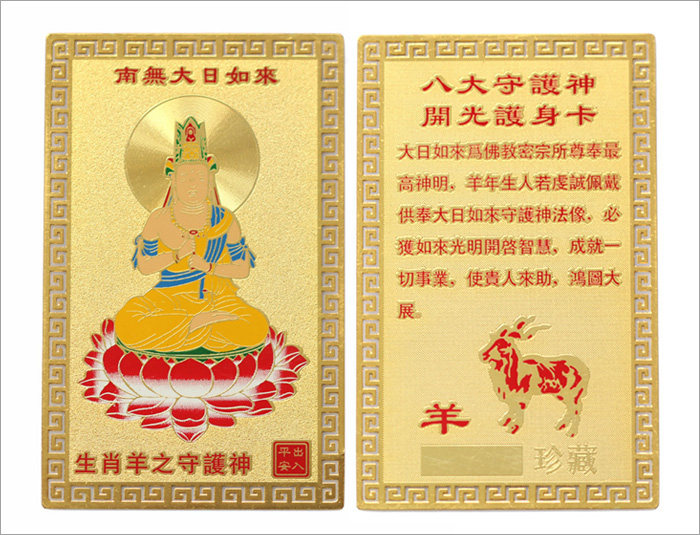 南無大日如來
生肖羊之守護神
出入
平安
八大守護神
開光護身卡
大日如來爲佛教密宗所尊奉最
高神明，羊年生人若虔誠佩戴
供奉大日如來守護神法像，必
獲如來光明開啓智慧，成就一
切事業，使貴人來助，鴻圖大
展。
羊
珍藏